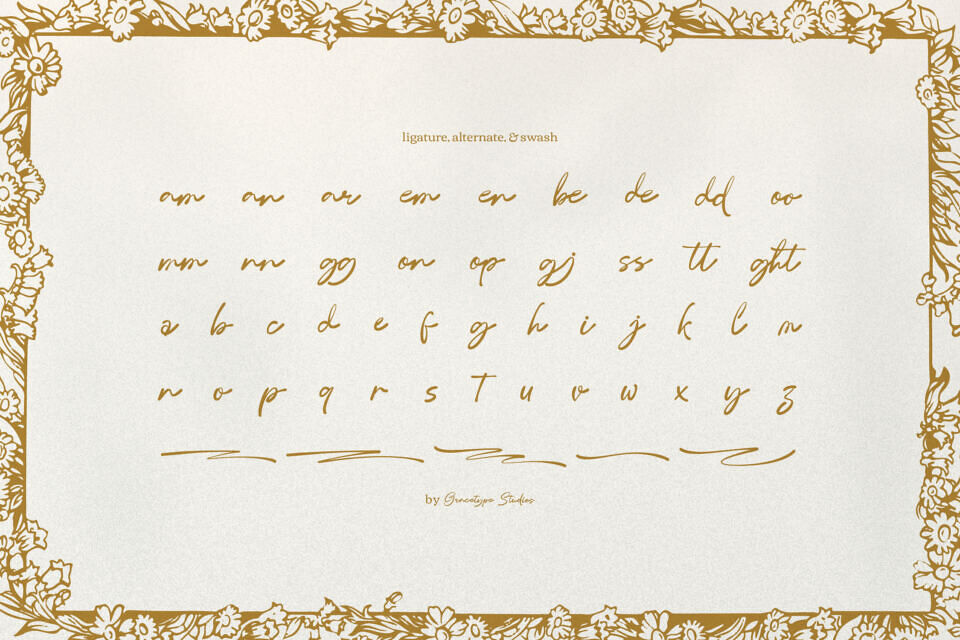 ligature, alternate, & swash
am an ar em en be de dd oo
mm nn gg on op gj ss tt ght
a b c d e f g h i j k l m
n o p q r s t u v w x y z
by Gracetype Studios